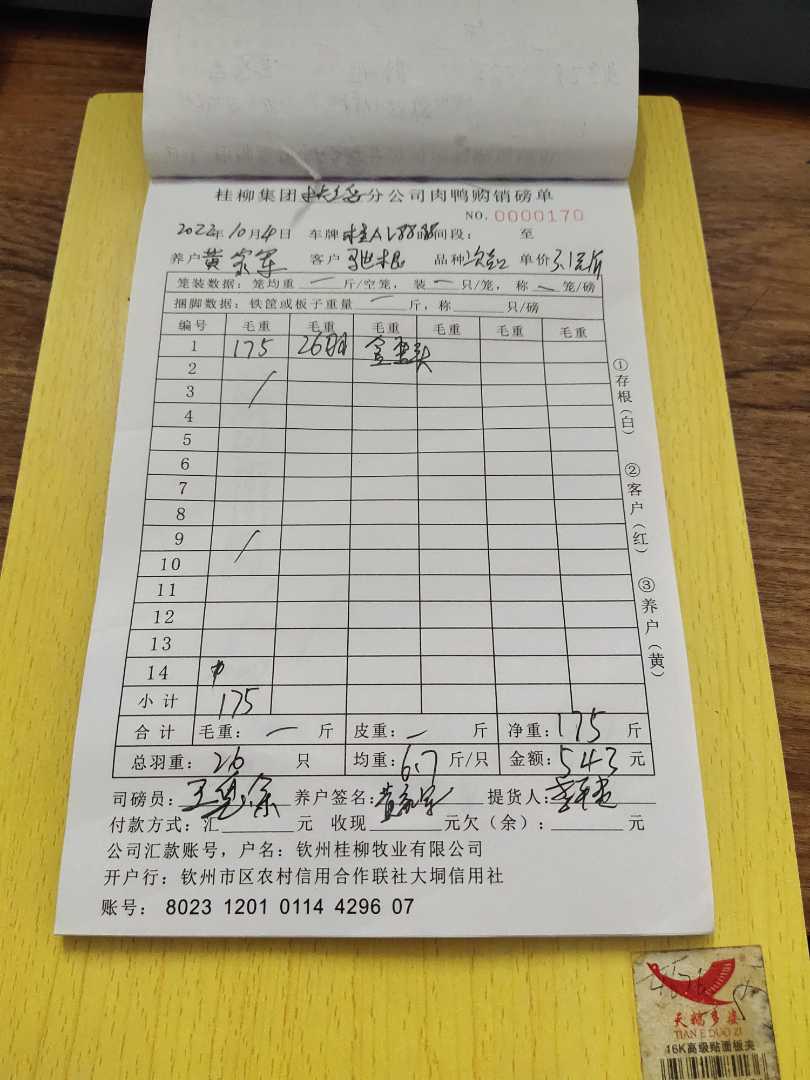 桂柳集团 分公司肉鸭购销磅单
NO. 0000170
2022年10月4日 车牌 间段： 至
养户黄家军 客户 品种 单价3.1元/斤
笼装数据：笼均重 一 斤/空笼，装 一 只/笼，称 一 笼/磅
捆脚数据：铁筐或板子重量 一 斤，称 只/磅
编号 毛重 毛重 毛重 毛重 毛重 毛重
1 175 26羽
2
3
4
5
6
7
8
9
10
11
12
13
14
小计 175
合计 毛重：一 斤 皮重：一 斤 净重：175 斤
总羽重：26 只 均重：6.7 斤/只 金额：543 元
司磅员： 养户签名：黄家军 提货人：
付款方式：汇 元 收现 元欠（余）： 元
公司汇款账号，户名：钦州桂柳牧业有限公司
开户行：钦州市区农村信用合作联社大垌信用社
账号： 8023 1201 0114 4296 07
①存根（白）
②客户（红）
③养户（黄）
天鹅多姿
TIAN E DUO ZI
16K高级贴面板夹